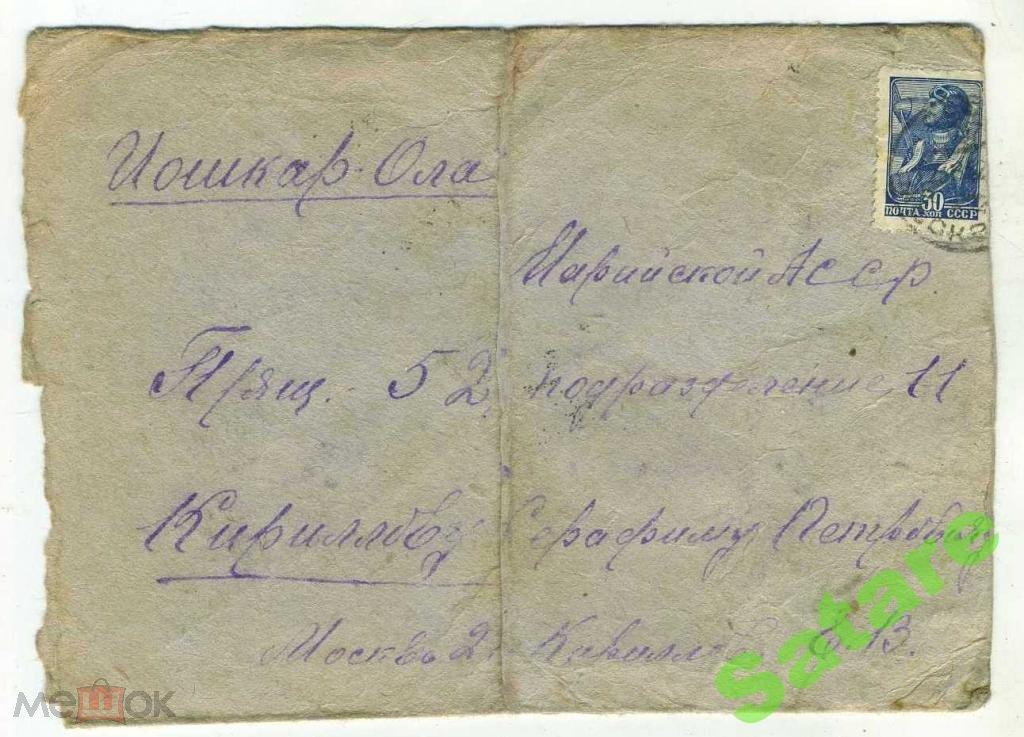 Йошкар-Ола
Марийской АССР.
П/ящ. 52, подразделение 11
Кириллову Серафиму Петровичу
Москва 2. Кириллов С. В.
30
ПОЧТА КОП СССР
Satare
мешок